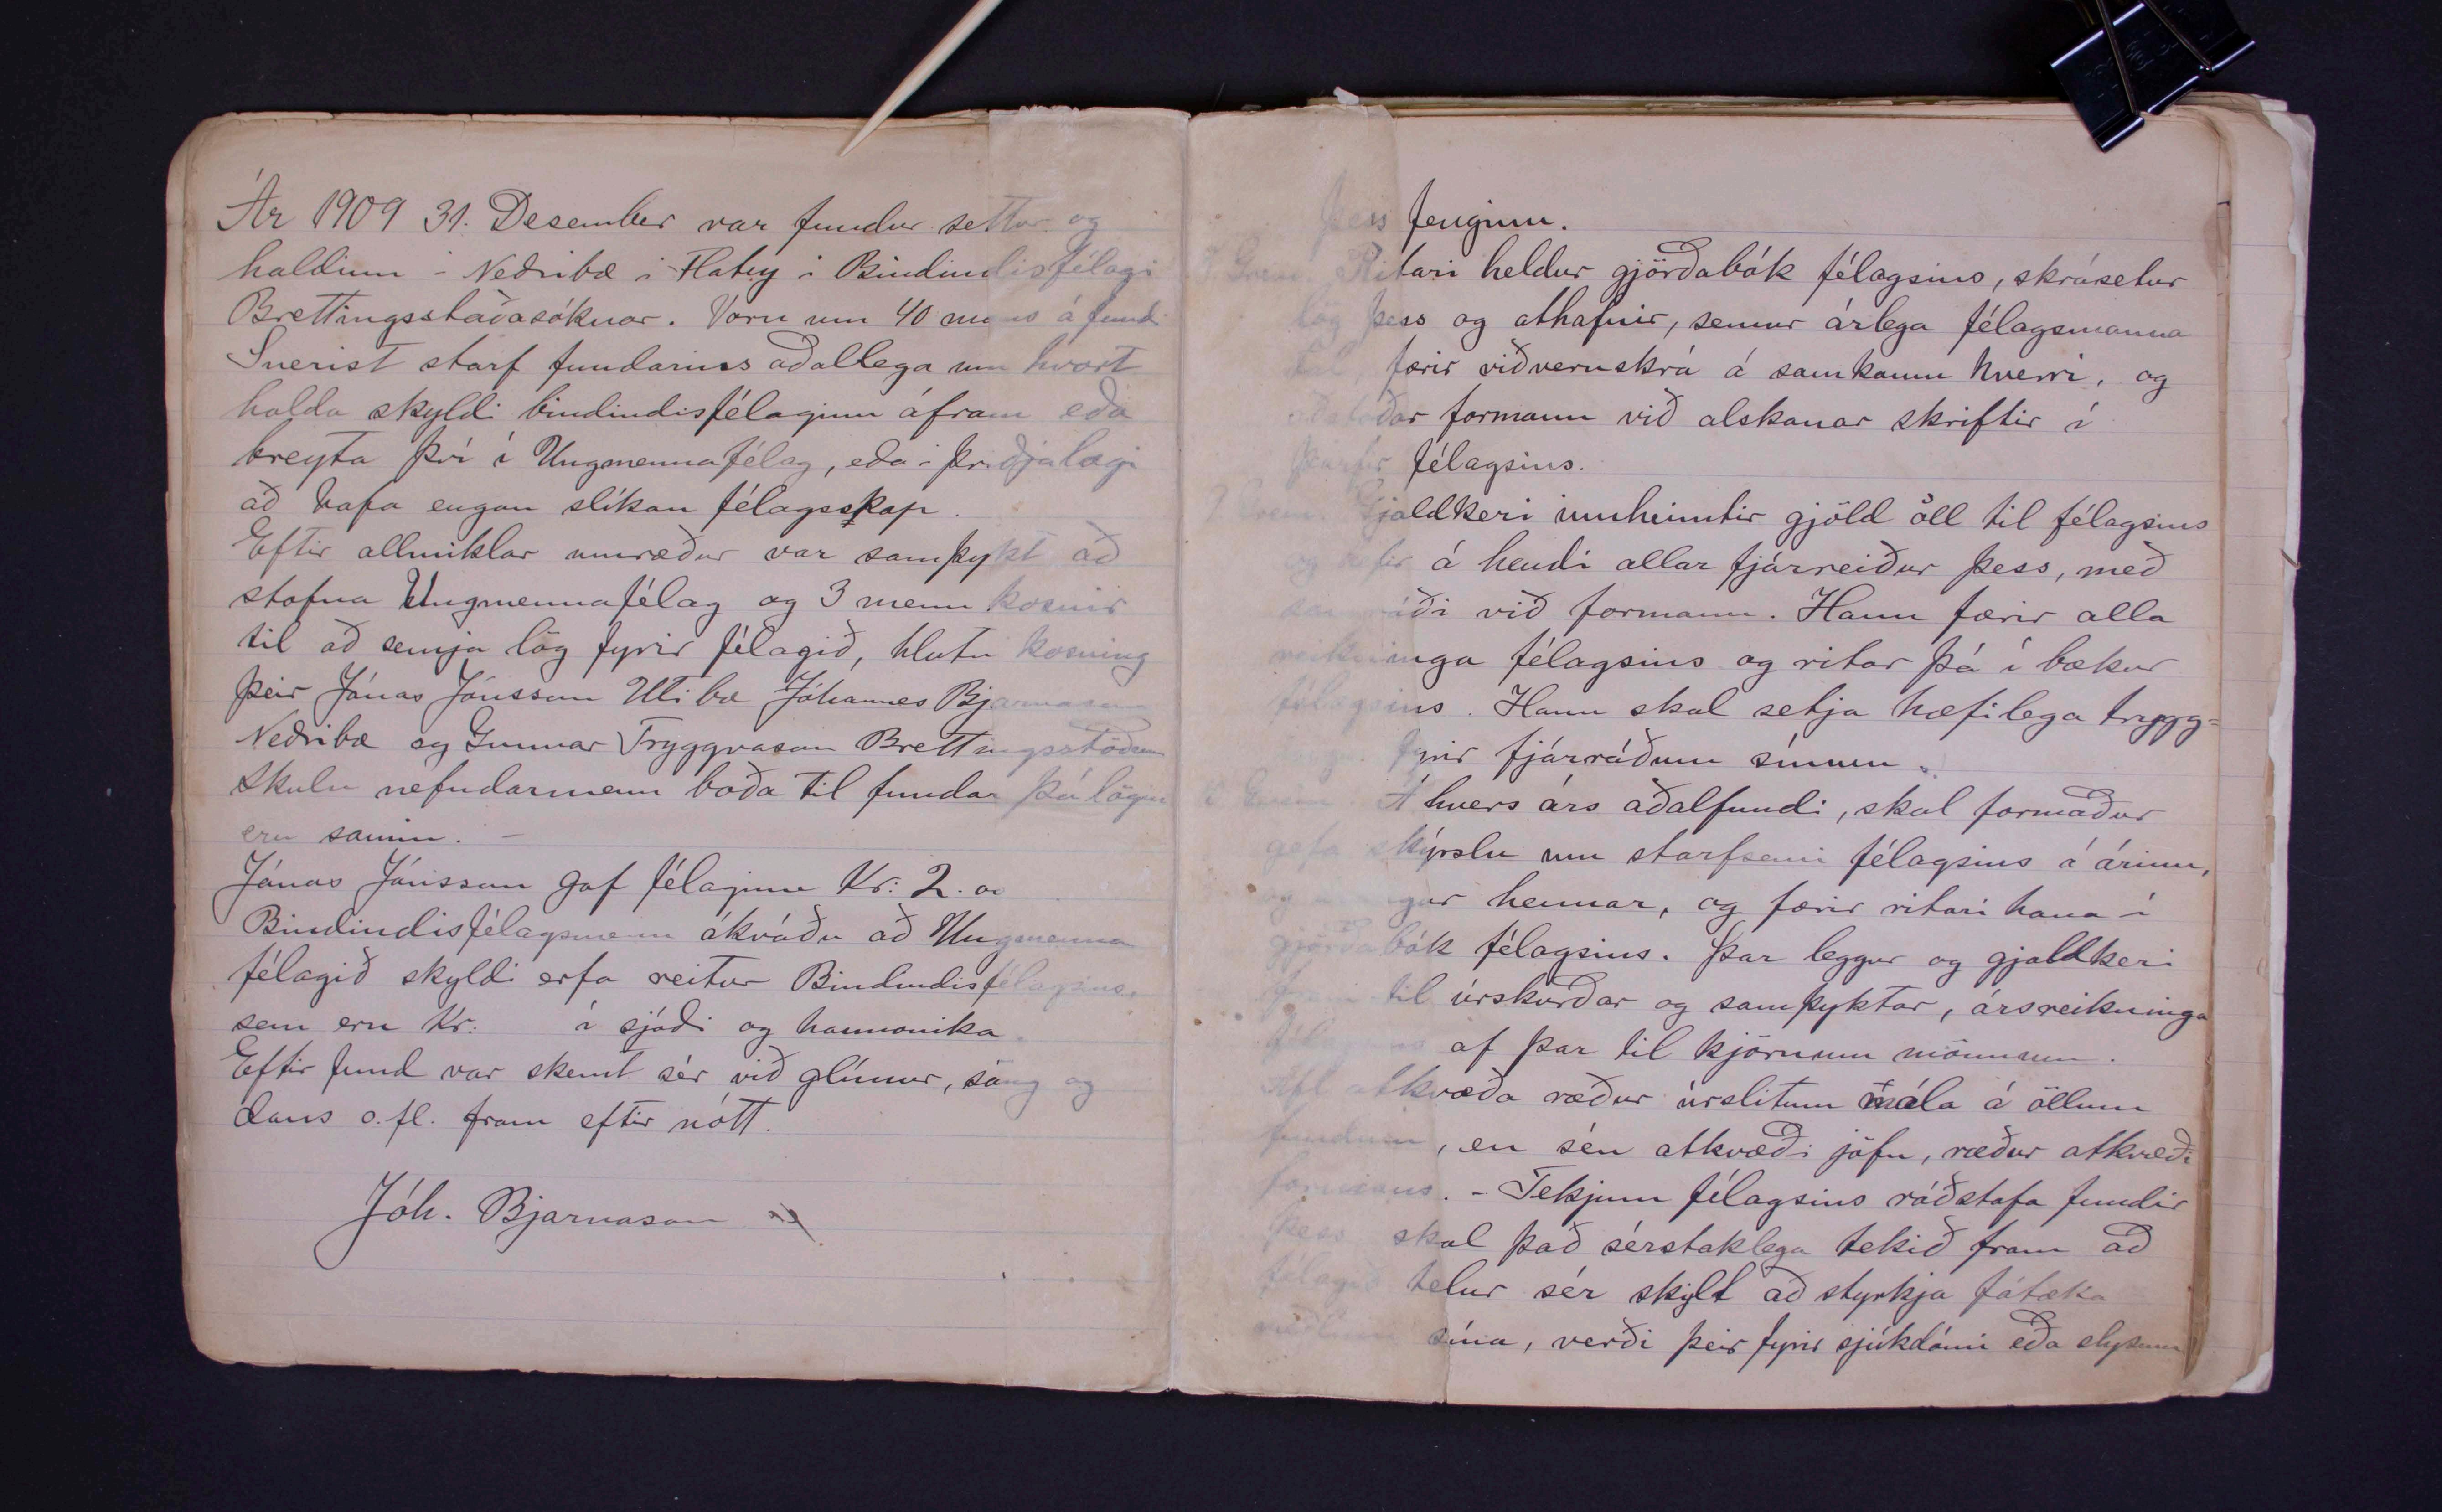 Ár 1909 31. Desember var fundur settur og
haldinn í Neðribæ í Flatey í Bindindisfélagi
Brettingsstaðasóknar. Voru um 40 mans á fundi
Snerist starf fundarins aðallega um hvort
halda skyldi bindindisfélaginu áfram eða
breyta því í Ungmennafélag, eða í þriðjalagi
að hafa engan slíkan félagsskap.
Eftir allmiklar umræður var samþykt að
stofna Ungmennafélag og 3 menn kosnir
til að semja lög fyrir félagið, hlutu kosning
þeir Jónas Jónsson Útibæ Jóhannes Bjarnason
Neðribæ og Gunnar Tryggvason Brettingsstöðum
skulu nefndarmenn boða til fundar þá lögin
eru samin. –
Jónas Jónsson gaf félaginu Kr: 2.00
Bindindisfélagsmenn ákváðu að Ungmenna
félagið skyldi erfa reitur Bindindisfélagsins
sem eru Kr: í sjóði og harmonika.
Eftir fund var skemt sér við glímur, söng og
dans o. fl. fram eftir nótt.
Jóh. Bjarnason
þess fenginn.
Grein. Ritari heldur gjörðabók félagsins, skrásetur
lög þess og athafnir, semur árlega félagsmanna
tal, færir viðveruskrá á samkomu hverri, og
aðstoðar formann við alskonar skriftir í
þarfir félagsins.
Grein. Gjaldkeri innheimtir gjöld öll til félagsins
og hefir á hendi allar fjárreiður þess, með
samráði við formann. Hann færir alla
reikninga félagsins og ritar þá í bækur
félagsins. Hann skal setja hæfilega trygg=
ingu fyrir fjárráðum sínum.
Grein. Á hvers árs aðalfundi, skal formaður
gefa skýrslu um starfsemi félagsins á árinu,
og hennar, og færir ritari hana í
gjörðabók félagsins. Þar leggur og gjaldkeri
fram til úrskurðar og samþyktar, ársreikninga
félagsins af þar til kjörnum mönnum.
Afl atkvæða ræður úrslitum mála á öllum
fundum, en séu atkvæði jöfn, ræður atkvæði
formans. – Tekjum félagsins ráðstafa fundir
þess skal það sérstaklega tekið fram að
félagið telur sér skylt að styrkja fátæka
meðlimi sína, verði þeir fyrir sjúkdómi eða slysum